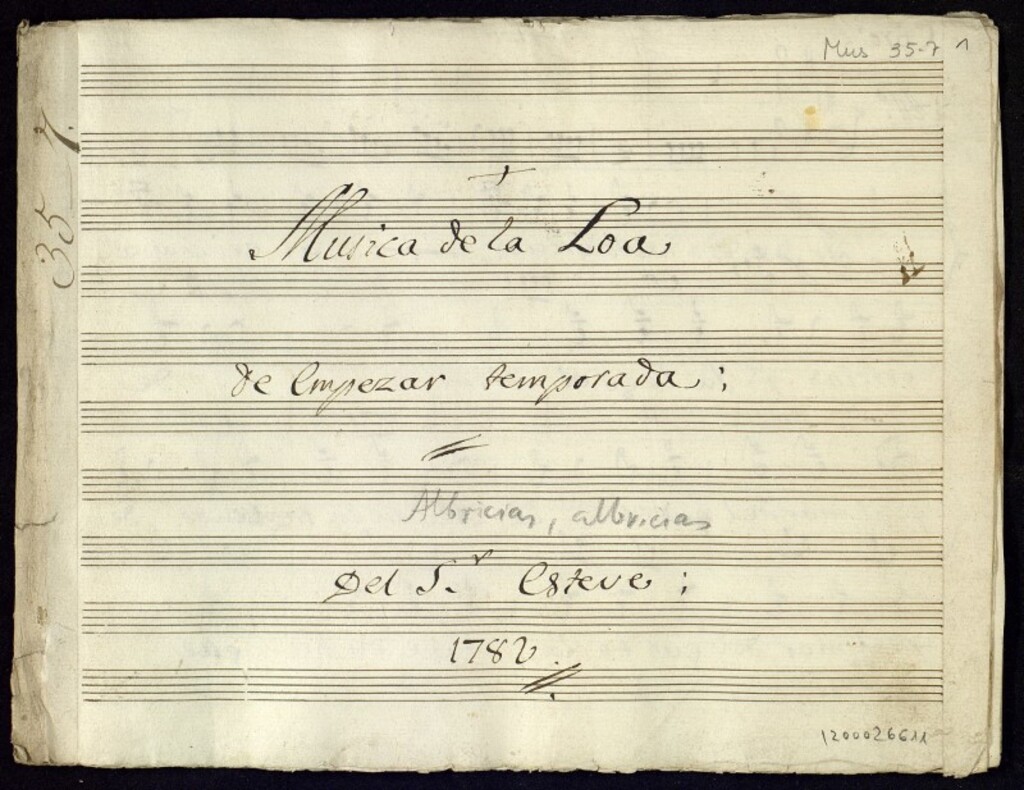 Mus 35-7 1
35-7.
Musica de la Loa
de Empezar temporada;
Albricias, albricias
Del S.r Esteve;
1782.
1200026611